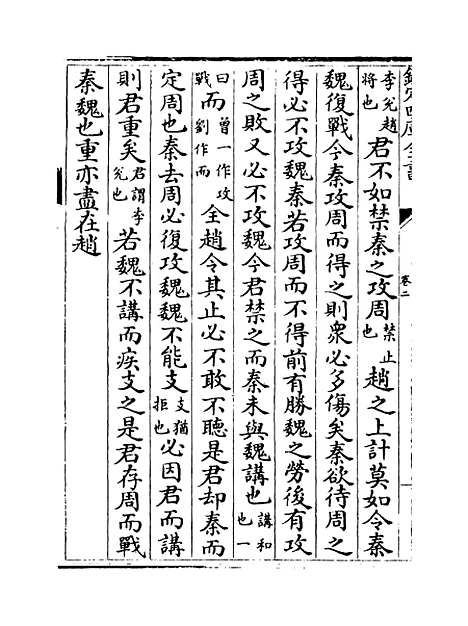 欽定四庫全書
卷二
李兊趙將也君不如禁秦之攻周禁止也趙之上計莫如令秦
魏復戰今秦攻周而得之則衆必多傷矣秦欲待周之
得必不攻魏秦若攻周而不得前有勝魏之勞後有攻
周之敗又必不攻魏今君禁之而秦未與魏講也講和也一
曰曾一作攻戰而劉作而全趙令其止必不敢不聽是君却秦而
定周也秦去周必復攻魏魏不能支支猶拒也必因君而講
則君重矣君謂李兊也若魏不講而疾支之是君存周而戰
秦魏也重亦盡在趙